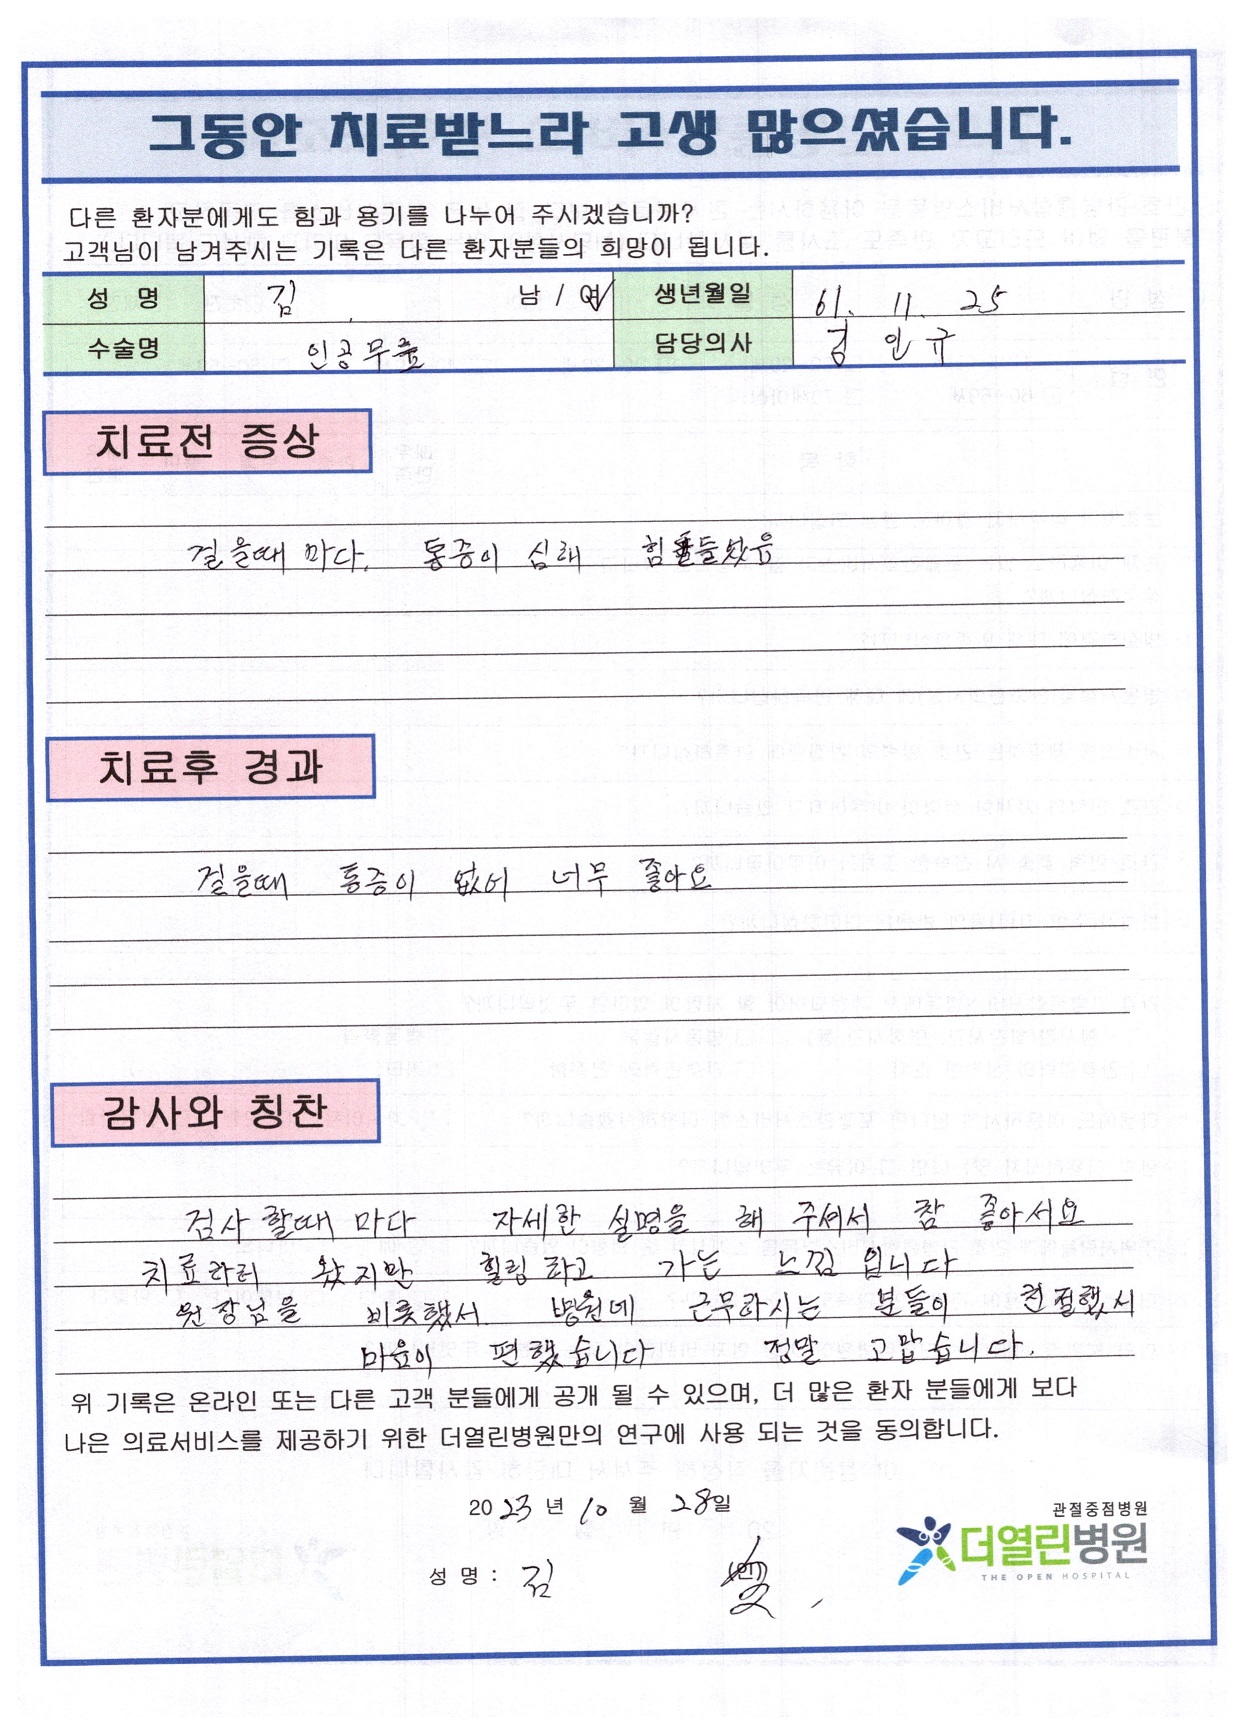 그동안 치료받느라 고생 많으셨습니다.
다른 환자분에게도 힘과 용기를 나누어 주시겠습니까?
고객님이 남겨주시는 기록은 다른 환자분들의 희망이 됩니다.
성 명 김 남 / 여 생년월일 61. 11. 25
수술명 인공무릎 담당의사 김인규
치료전 증상
걸을때 마다. 통증이 심해 힘들었음
치료후 경과
걸을때 통증이 없어 너무 좋아요
감사와 칭찬
검사 할때 마다 자세한 설명을 해 주셔서 참 좋아서요
치료하러 왔지만 힐링하고 가는 느낌 입니다
원장님을 비롯했서 병원데 근무하시는 분들이 친절했서
마음이 편했습니다 정말 고맙습니다.
위 기록은 온라인 또는 다른 고객 분들에게 공개 될 수 있으며, 더 많은 환자 분들에게 보다
나은 의료서비스를 제공하기 위한 더열린병원만의 연구에 사용 되는 것을 동의합니다.
2023년 10월 28일
관절중점병원
더열린병원
THE OPEN HOSPITAL
성 명 : 김 (인)